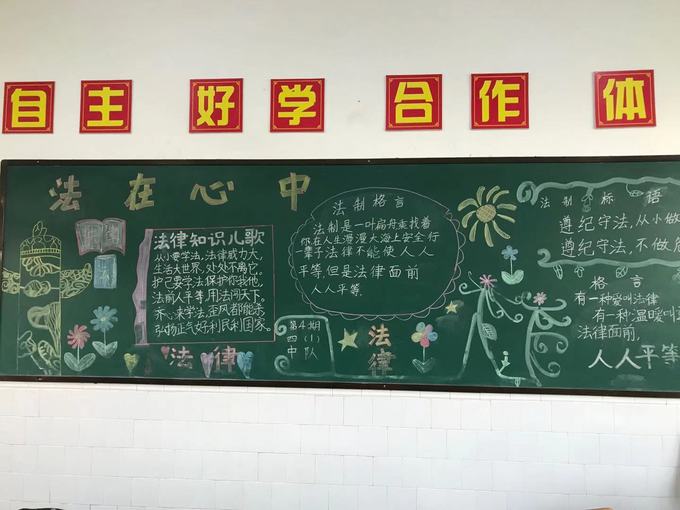 自主 好学 合作 体
法在心中
法律知识儿歌
从小要学法,法律威力大,
生活大世界,处处不离它,
护己要学法,保护你我他,
法前人平等,用法问天下,
齐心来学法,
弘扬正气好利民利国家.
法律
法制格言
法制是一叶扁舟乘找着
你在人生漫漫大海上安全行
辈子法律不能使人人
平等,但是法律面前
人人平等.
第4期
四(1)
中队
法律
法制标语
遵纪守法,从小做
遵纪守法,不做危
格言
有一种爱叫法律
有一种温暖叫
法律面前,
人人平等